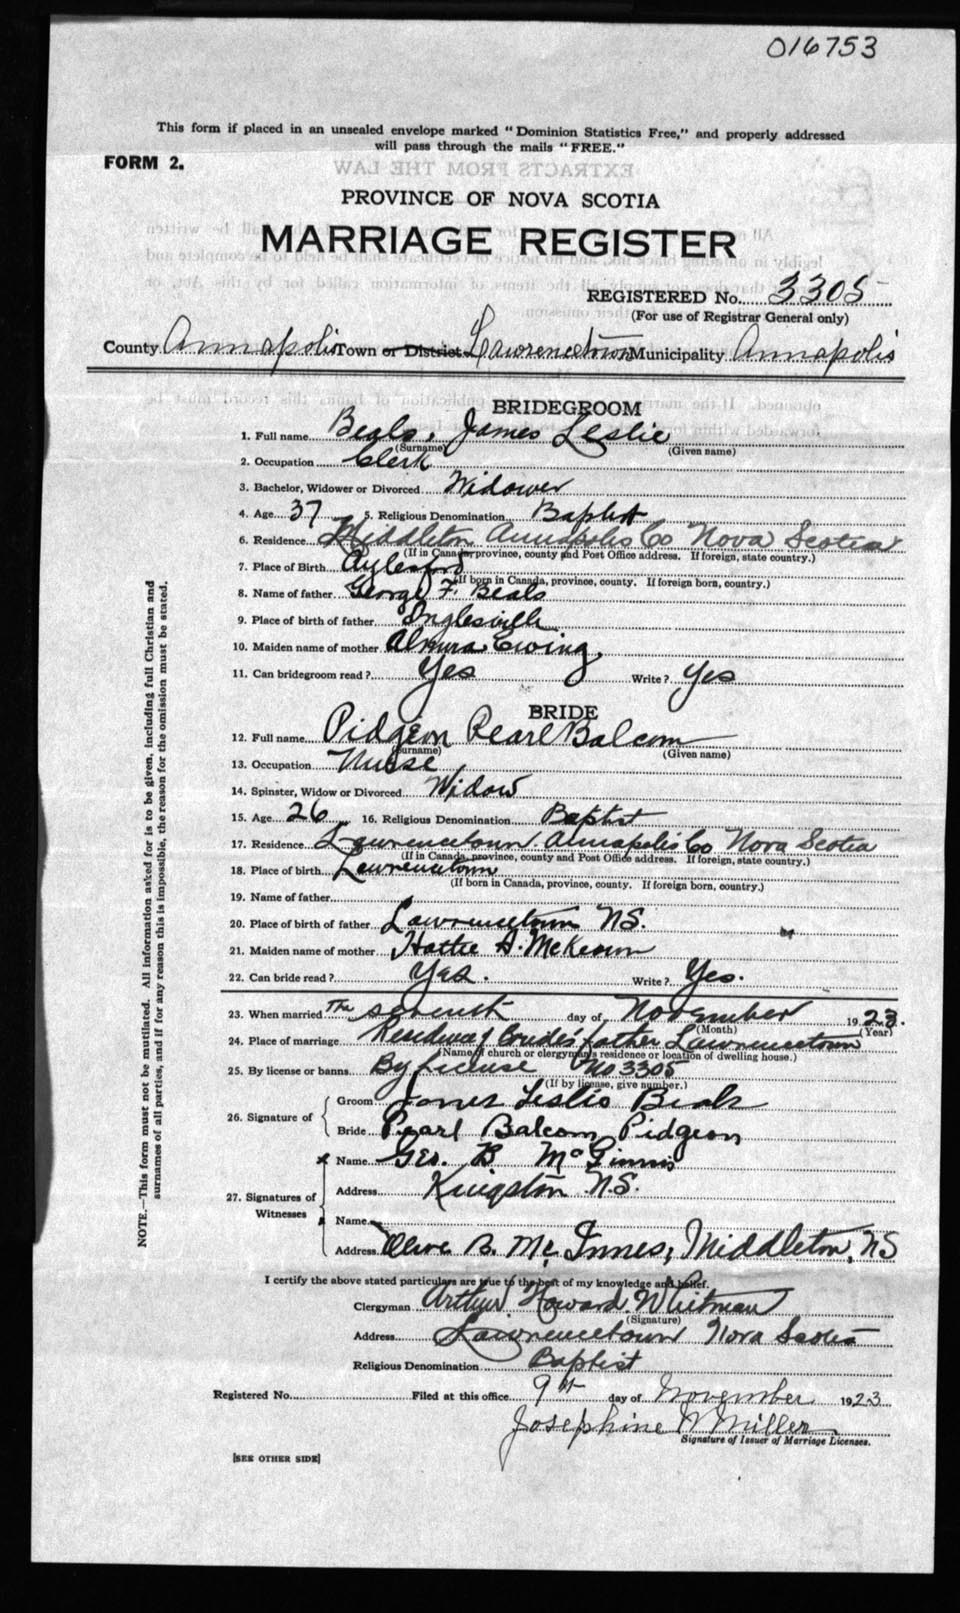 016753
This form if placed in an unsealed envelope marked "Dominion Statistics Free," and properly addressed
will pass through the mails "FREE."
FORM 2.
PROVINCE OF NOVA SCOTIA
MARRIAGE REGISTER
REGISTERED No. 3305
(For use of Registrar General only)
County Annapolis Town or District Lawrencetown Municipality Annapolis
BRIDEGROOM
1. Full name Beals, James Leslie
(Surname) (Given name)
2. Occupation Clerk
3. Bachelor, Widower or Divorced Widower
4. Age 37 5. Religious Denomination Baptist
6. Residence Middleton Annapolis Co Nova Scotia
(If in Canada, province, county and Post Office address. If foreign, state country.)
7. Place of Birth Aylesford
(If born in Canada, province, county. If foreign born, country.)
8. Name of father George F. Beals
9. Place of birth of father Inglesville
10. Maiden name of mother Ewing
11. Can bridegroom read? Yes Write? Yes
BRIDE
12. Full name Pidgeon Pearl Balcom
(Surname) (Given name)
13. Occupation Nurse
14. Spinster, Widow or Divorced Widow
15. Age 26 16. Religious Denomination Baptist
17. Residence Lawrencetown Annapolis Co Nova Scotia
(If in Canada, province, county and Post Office address. If foreign, state country.)
18. Place of birth Lawrencetown
(If born in Canada, province, county. If foreign born, country.)
19. Name of father
20. Place of birth of father Lawrencetown N.S.
21. Maiden name of mother Hattie A. McKeown
22. Can bride read? Yes. Write? Yes.
23. When married The seventh day of November 1923.
(Month) (Year)
24. Place of marriage Residence of bride's father Lawrencetown
(Name of church or clergyman's residence or location of dwelling house.)
25. By license or banns By License No 3305
(If by license, give number.)
26. Signature of
Groom James Leslie Beals
Bride Pearl Balcom Pidgeon
27. Signatures of Witnesses
x Name Geo. B. McGinnis
Address Kingston N.S.
x Name
Address Olive B. Mc Innes, Middleton, NS
I certify the above stated particulars are true to the best of my knowledge and belief.
Clergyman Arthur Howard Whitman
(Signature)
Address Lawrencetown Nova Scotia
Religious Denomination Baptist
Registered No. Filed at this office 9th day of November 1923
Josephine M Miller
Signature of Issuer of Marriage Licenses.
[SEE OTHER SIDE]
NOTE.—This form must not be mutilated. All information asked for is to be given, including full Christian and
surnames of all parties, and if for any reason this is impossible, the reason for the omission must be stated.